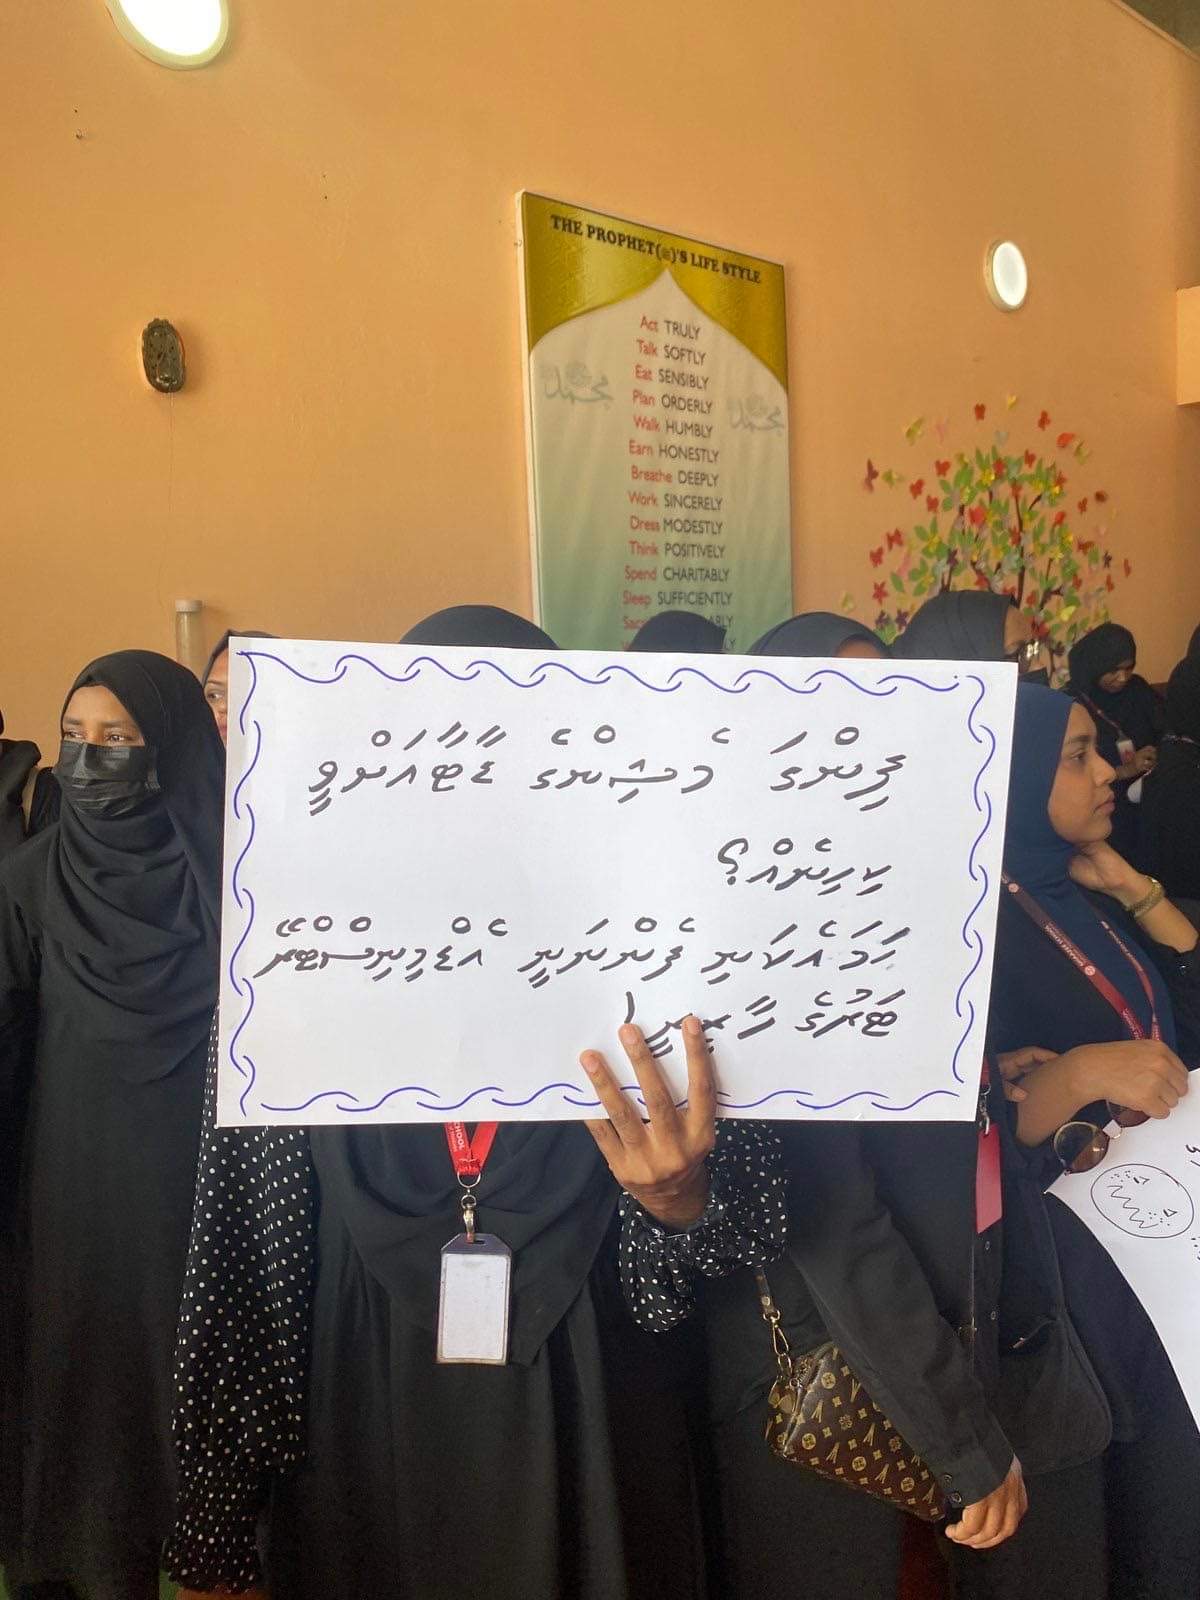 THE PROPHET(ﷺ)'S LIFE STYLE
Act TRULY
Talk SOFTLY
Eat SENSIBLY
Plan ORDERLY
Walk HUMBLY
Earn HONESTLY
Breathe DEEPLY
Work SINCERELY
Dress MODESTLY
Think POSITIVELY
Spend CHARITABLY
Sleep SUFFICIENTLY
محمد
محمد
ފިންގަ މެޝިންގެ ޑާޓާއަށްވީ
ކިހިނެއް؟
ހަމަ އެކަނި ފެންނަނީ އެޑްމިނިސްޓްރޭ
ޓަރުގެ
SCHOOL